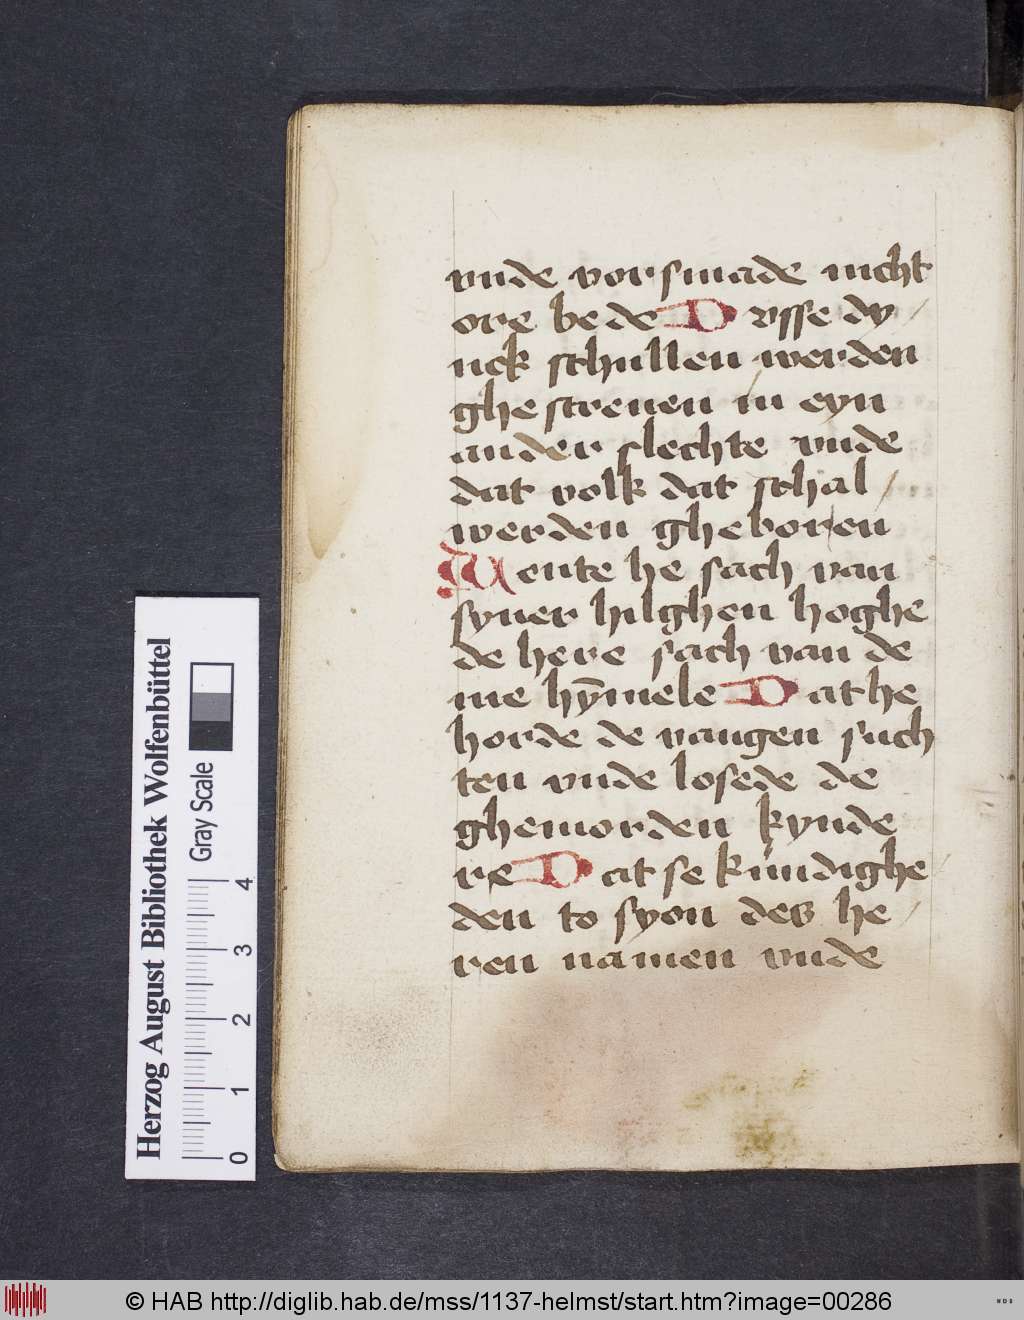 vnde vorsmade nicht
ore bede Dysse dy
nck schullen werden
ghescreuen in eyn
ander slechte vnde
dat volk dat schal
werden gheboren
Wente he sach van
syner hilghen hoghe
de here sach van de
me hȳmele Dat he
horde de vangen such
ten vnde losede de
ghemorden kynde
re Dat se kundighe
den to syon des he
ren namen vnde
Herzog August Bibliothek Wolfenbüttel
Gray Scale
0 1 2 3 4
© HAB http://diglib.hab.de/mss/1137-helmst/start.htm?image=00286